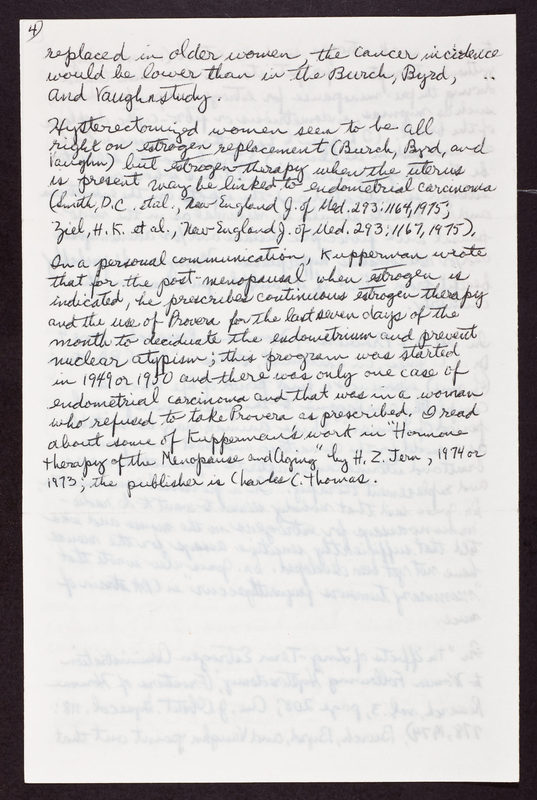 4)
replaced in older women, the cancer incidence
would be lower than in the Burch, Byrd,
and Vaughn study.
Hysterectomized women seem to be all
right on estrogen replacement (Burch, Byrd, and
Vaughn) but estrogen therapy when the uterus
is present may be linked to endometrial carcinoma
(Smith, D.C. et al., New England J. of Med. 293:1164, 1975;
Ziel, H.K. et al., New England J. of Med. 293:1167, 1975).
In a personal communication, Kupperman wrote
that for the post-menopausal when estrogen is
indicated, he prescribes continuous estrogen therapy
and the use of Provera for the last seven days of the
month to deciduate the endometrium and prevent
nuclear atypism; this program was started
in 1949 or 1950 and there was only one case of
endometrial carcinoma and that was in a woman
who refused to take Provera as prescribed. I read
about some of Kupperman's work in "Hormone
therapy of the Menopause and Aging" by H. Z. Jern, 1974 or
1973; the publisher is Charles C. Thomas.